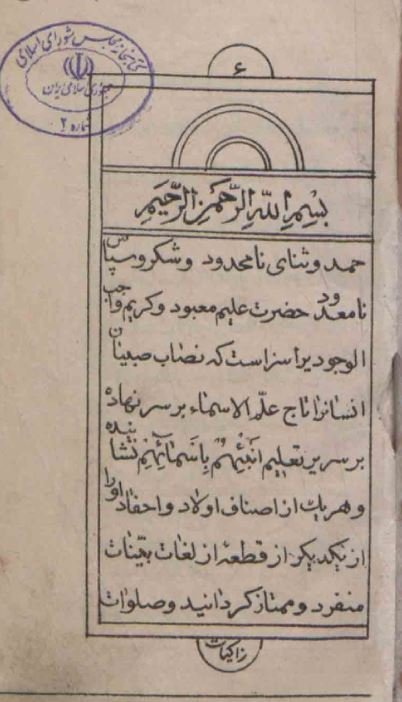 کتابخانه مجلس شورای اسلامی
جمهوری اسلامی ایران
شماره ۲
۶
بسم الله الرحمن الرحیم
حمد و ثنای نامحدود و شکر و سپاس
نامعدود حضرت علیم معبود و کریم واجب
الوجود یرا سزاست که نصاب صبیان
انسانرا تاج علّم الاسماء بر سر نهاده
بر سریر تعلیم انبئهم باسمائهم نشانیده
و هر یك از اصناف اولاد و احفاد اورا
از یکدیکر از قطعهٔ از لغات بیّنات
منفرد و ممتاز کردانید و صلوات
زاکیات